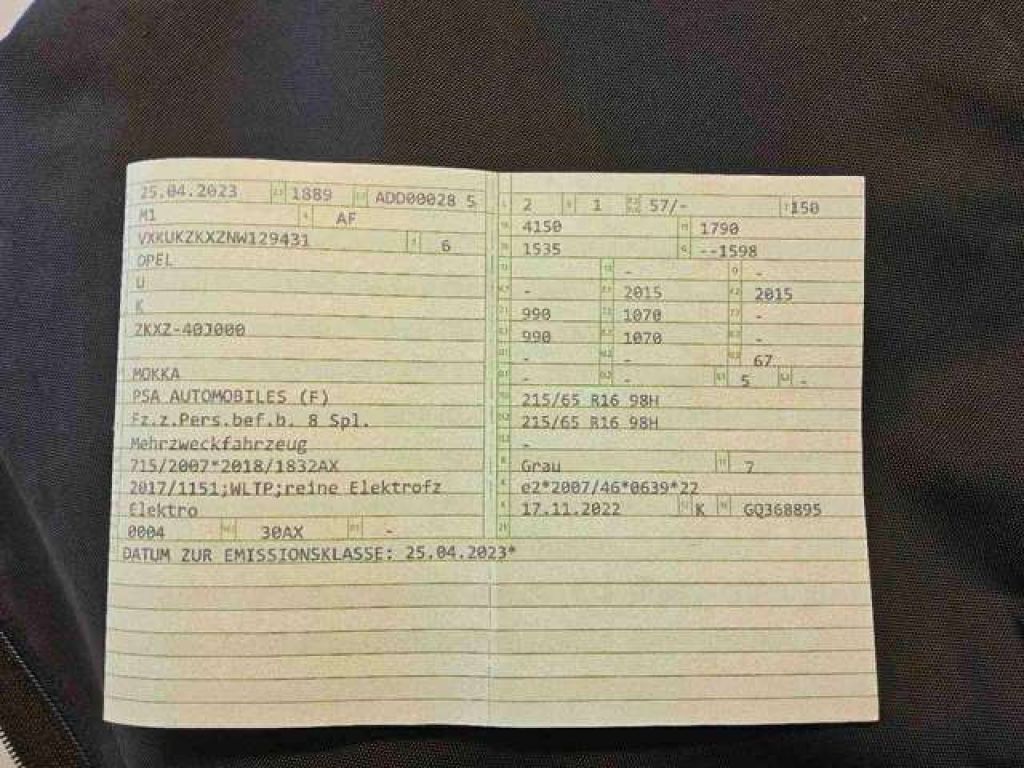 25.04.2023 1889 ADD00028 5
M1 AF
VXKUKZKXZNW129431 6
OPEL
U
K
ZKXZ-40J000
MOKKA
PSA AUTOMOBILES (F)
Fz.z.Pers.bef.b. 8 Spl.
Mehrzweckfahrzeug
715/2007*2018/1832AX
2017/1151;WLTP;reine Elektrofz
Elektro
0004 30AX -
DATUM ZUR EMISSIONSKLASSE: 25.04.2023*
2 1 57/- 150
4150 1790
1535 --1598
- -
- 2015 2015
990 1070 -
990 1070 -
- - 67
- - 5 -
215/65 R16 98H
215/65 R16 98H
-
Grau 7
e2*2007/46*0639*22
17.11.2022 K GQ368895